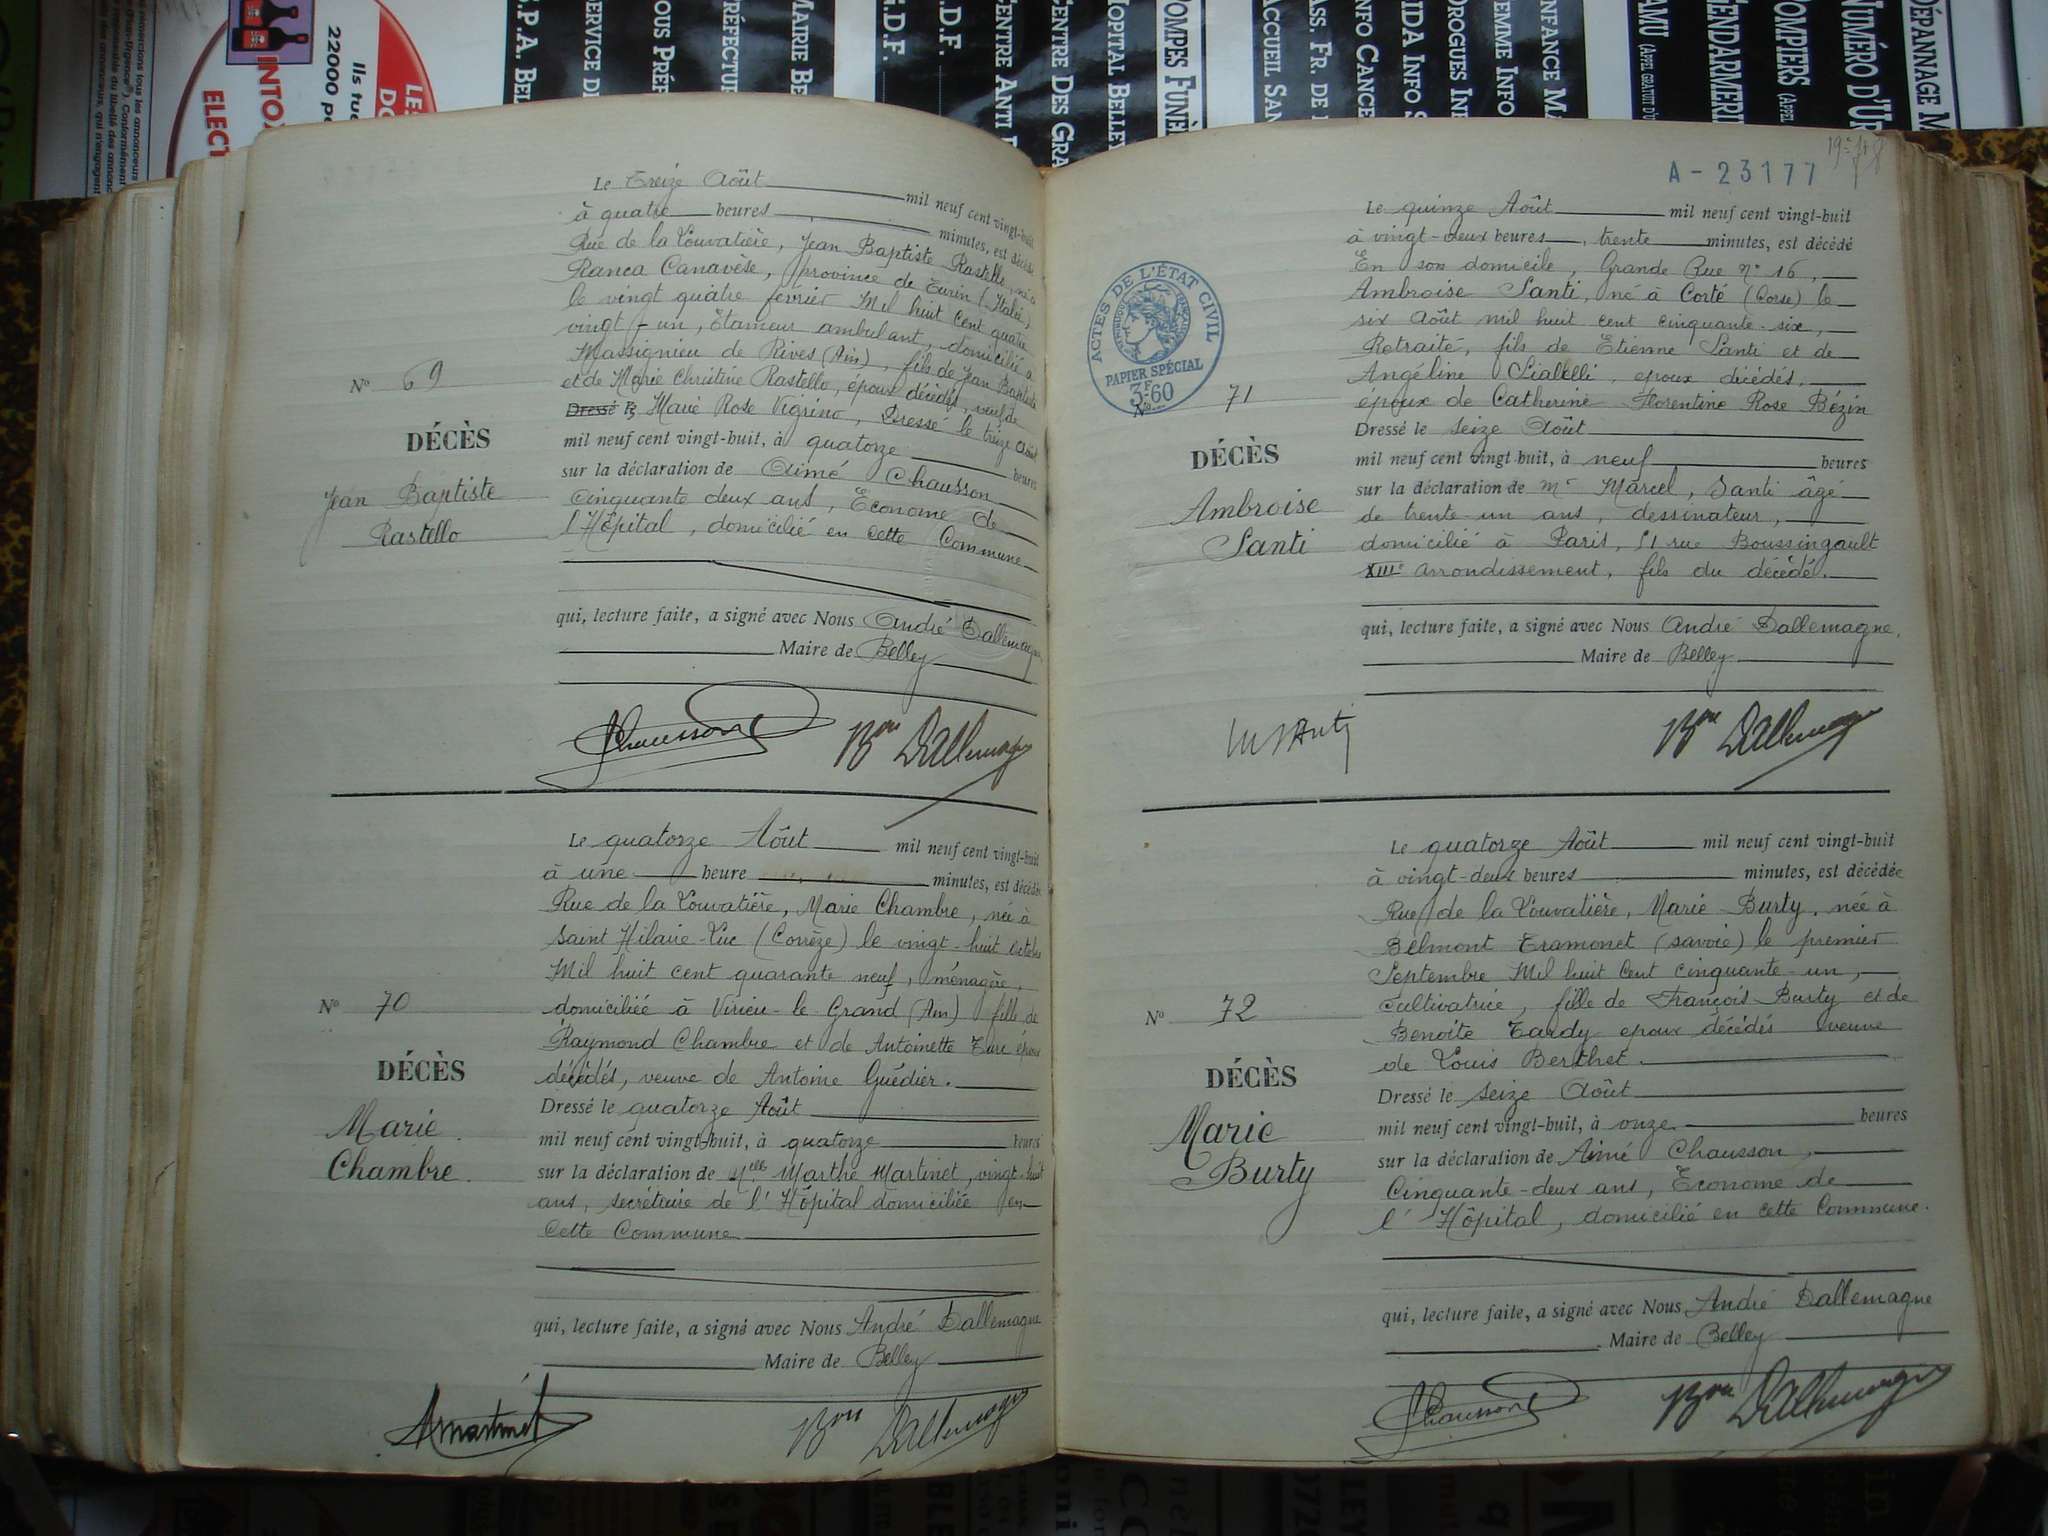 Le treize Août mil neuf cent vingt-huit
à quatre heures minutes, est décédé
Rue de la Louvatière, Jean Baptiste Rastello, né à
Ranca Canavèse, (province de Turin (Italie),
le vingt quatre février Mil huit cent quatre
vingt-un, Etameur ambulant, domicilié à
Massignieu de Rives (Ain), fils de Jean Baptiste
et de Marie Christine Rastello, epoux décédés, veuf de
Marie Rose Vigrino, Dressé le treize Août
mil neuf cent vingt-huit, à quatorze heures
sur la déclaration de Aimé Chausson
Cinquante deux ans, Econome de
l'Hôpital, domicilié en cette Commune
qui, lecture faite, a signé avec Nous André Dallemagne
Maire de Belley
N° 69
DÉCÈS
Jean Baptiste
Rastello
Chausson
Bon Dallemagne
Le quatorze Août mil neuf cent vingt-huit
à une heure minutes, est décédée
Rue de la Louvatière, Marie Chambre, née à
Saint Hilaire-Luc (Corrèze) le vingt-huit octobre
Mil huit cent quarante neuf, ménagère,
domiciliée à Virieu-le-Grand (Ain) fille de
Raymond Chambre et de Antoinette époux
décédés, veuve de Antoine Guédier.
Dressé le quatorze Août
mil neuf cent vingt-huit, à quatorze heures
sur la déclaration de Melle Marthe Martinet, vingt-huit
ans, secrétaire de l'Hôpital domiciliée en
cette Commune
qui, lecture faite, a signé avec Nous André Dallemagne
Maire de Belley
N° 70
DÉCÈS
Marie
Chambre
Martinet
Bon Dallemagne
A-23177
ACTES DE L'ÉTAT CIVIL
PAPIER SPÉCIAL
3F.60
Le quinze Août mil neuf cent vingt-huit
à vingt-deux heures, trente minutes, est décédé
En son domicile, Grande Rue n° 16,
Ambroise Santi, né à Corté (Corse) le
six Août mil huit cent cinquante-six,
Retraité, fils de Etienne Santi et de
Angéline Lialelli, epoux décédés,
epoux de Catherine Florentine Rose Bézin
Dressé le seize Août
mil neuf cent vingt-huit, à neuf heures
sur la déclaration de Mr Marcel, Santi âgé
de trente-un ans, dessinateur,
domicilié à Paris, 51 rue Boussingault
XIIIe arrondissement, fils du décédé.
qui, lecture faite, a signé avec Nous André Dallemagne,
Maire de Belley
N° 71
DÉCÈS
Ambroise
Santi
Bon Dallemagne
Le quatorze Août mil neuf cent vingt-huit
à vingt-deux heures minutes, est décédée
Rue de la Louvatière, Marie Burty, née à
Belmont Tramonet (savoie) le premier
Septembre Mil huit Cent cinquante-un,
Cultivatrice, fille de François Burty et de
Benoîte Tardy epoux décédés veuve
de Louis Berthet.
Dressé le seize Août
mil neuf cent vingt-huit, à onze heures
sur la déclaration de Aimé Chausson,
Cinquante-deux ans, Econome de
l'Hôpital, domicilié en cette Commune.
qui, lecture faite, a signé avec Nous André Dallemagne
Maire de Belley
N° 72
DÉCÈS
Marie
Burty
Chausson
Bon Dallemagne
INTOX
ELECT
Ils tu
22000 p
S.P.A. BEL
SERVICE DE
OUS PRÉF
RÉFECTUR
MAIRIE BE
G.D.F.
E.D.F.
CENTRE ANTI
CENTRE DES GRA
HOPITAL BELLEY
POMPES FUNÈ
ACCUEIL SAN
ASS. FR. DE
INFO CANCE
SIDA INFO S
DROGUES IN
FEMME INFO
ENFANCE MA
SAMU (APPEL GRATUIT D'U
GENDARMERI
POMPIERS (APPEL
NUMÉRO D'UR
DÉPANNAGE M